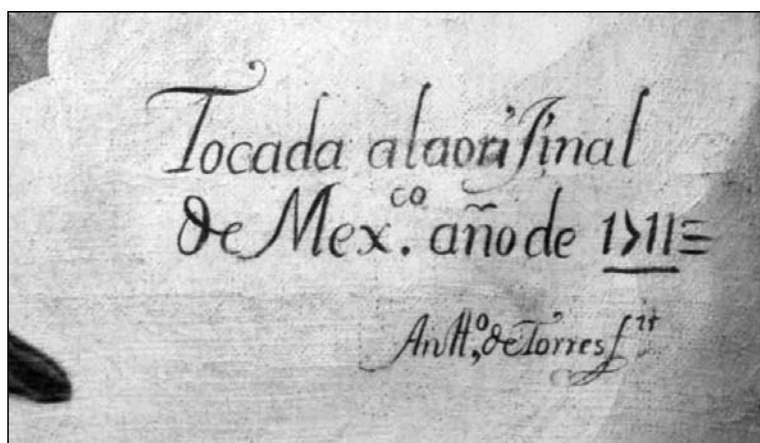 Tocada a la oriJinal
de Mex.co año de 1711
Antto, de Torres f.it